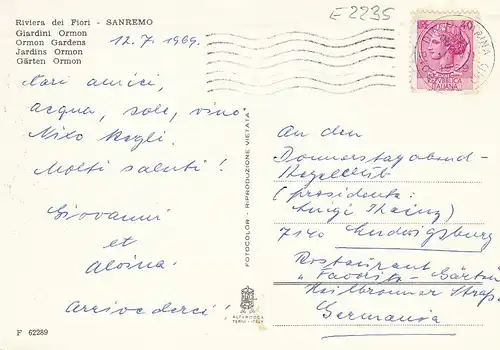 Riviera dei Fiori - SANREMO
Giardini Ormon
Ormon Gardens
Jardins Ormon
Gärten Ormon
12.7.1969.
E 2235
40
ITALIANA
Cari amici,
acqua, sole, vino
Niko
Molti saluti!
Giovanni
et
Aloina
Arrivederci!
FOTOCOLOR - RIPRODUZIONE VIETATA
ALTEROCCA
TERNI - ITALY
An den
Donnerstagabend-
Kegelclub
(presidente:
Luigi
7140 Ludwigsburg
Restaurant
"Favorite-Gärten
Heilbronner Straße
Germania
F 62289